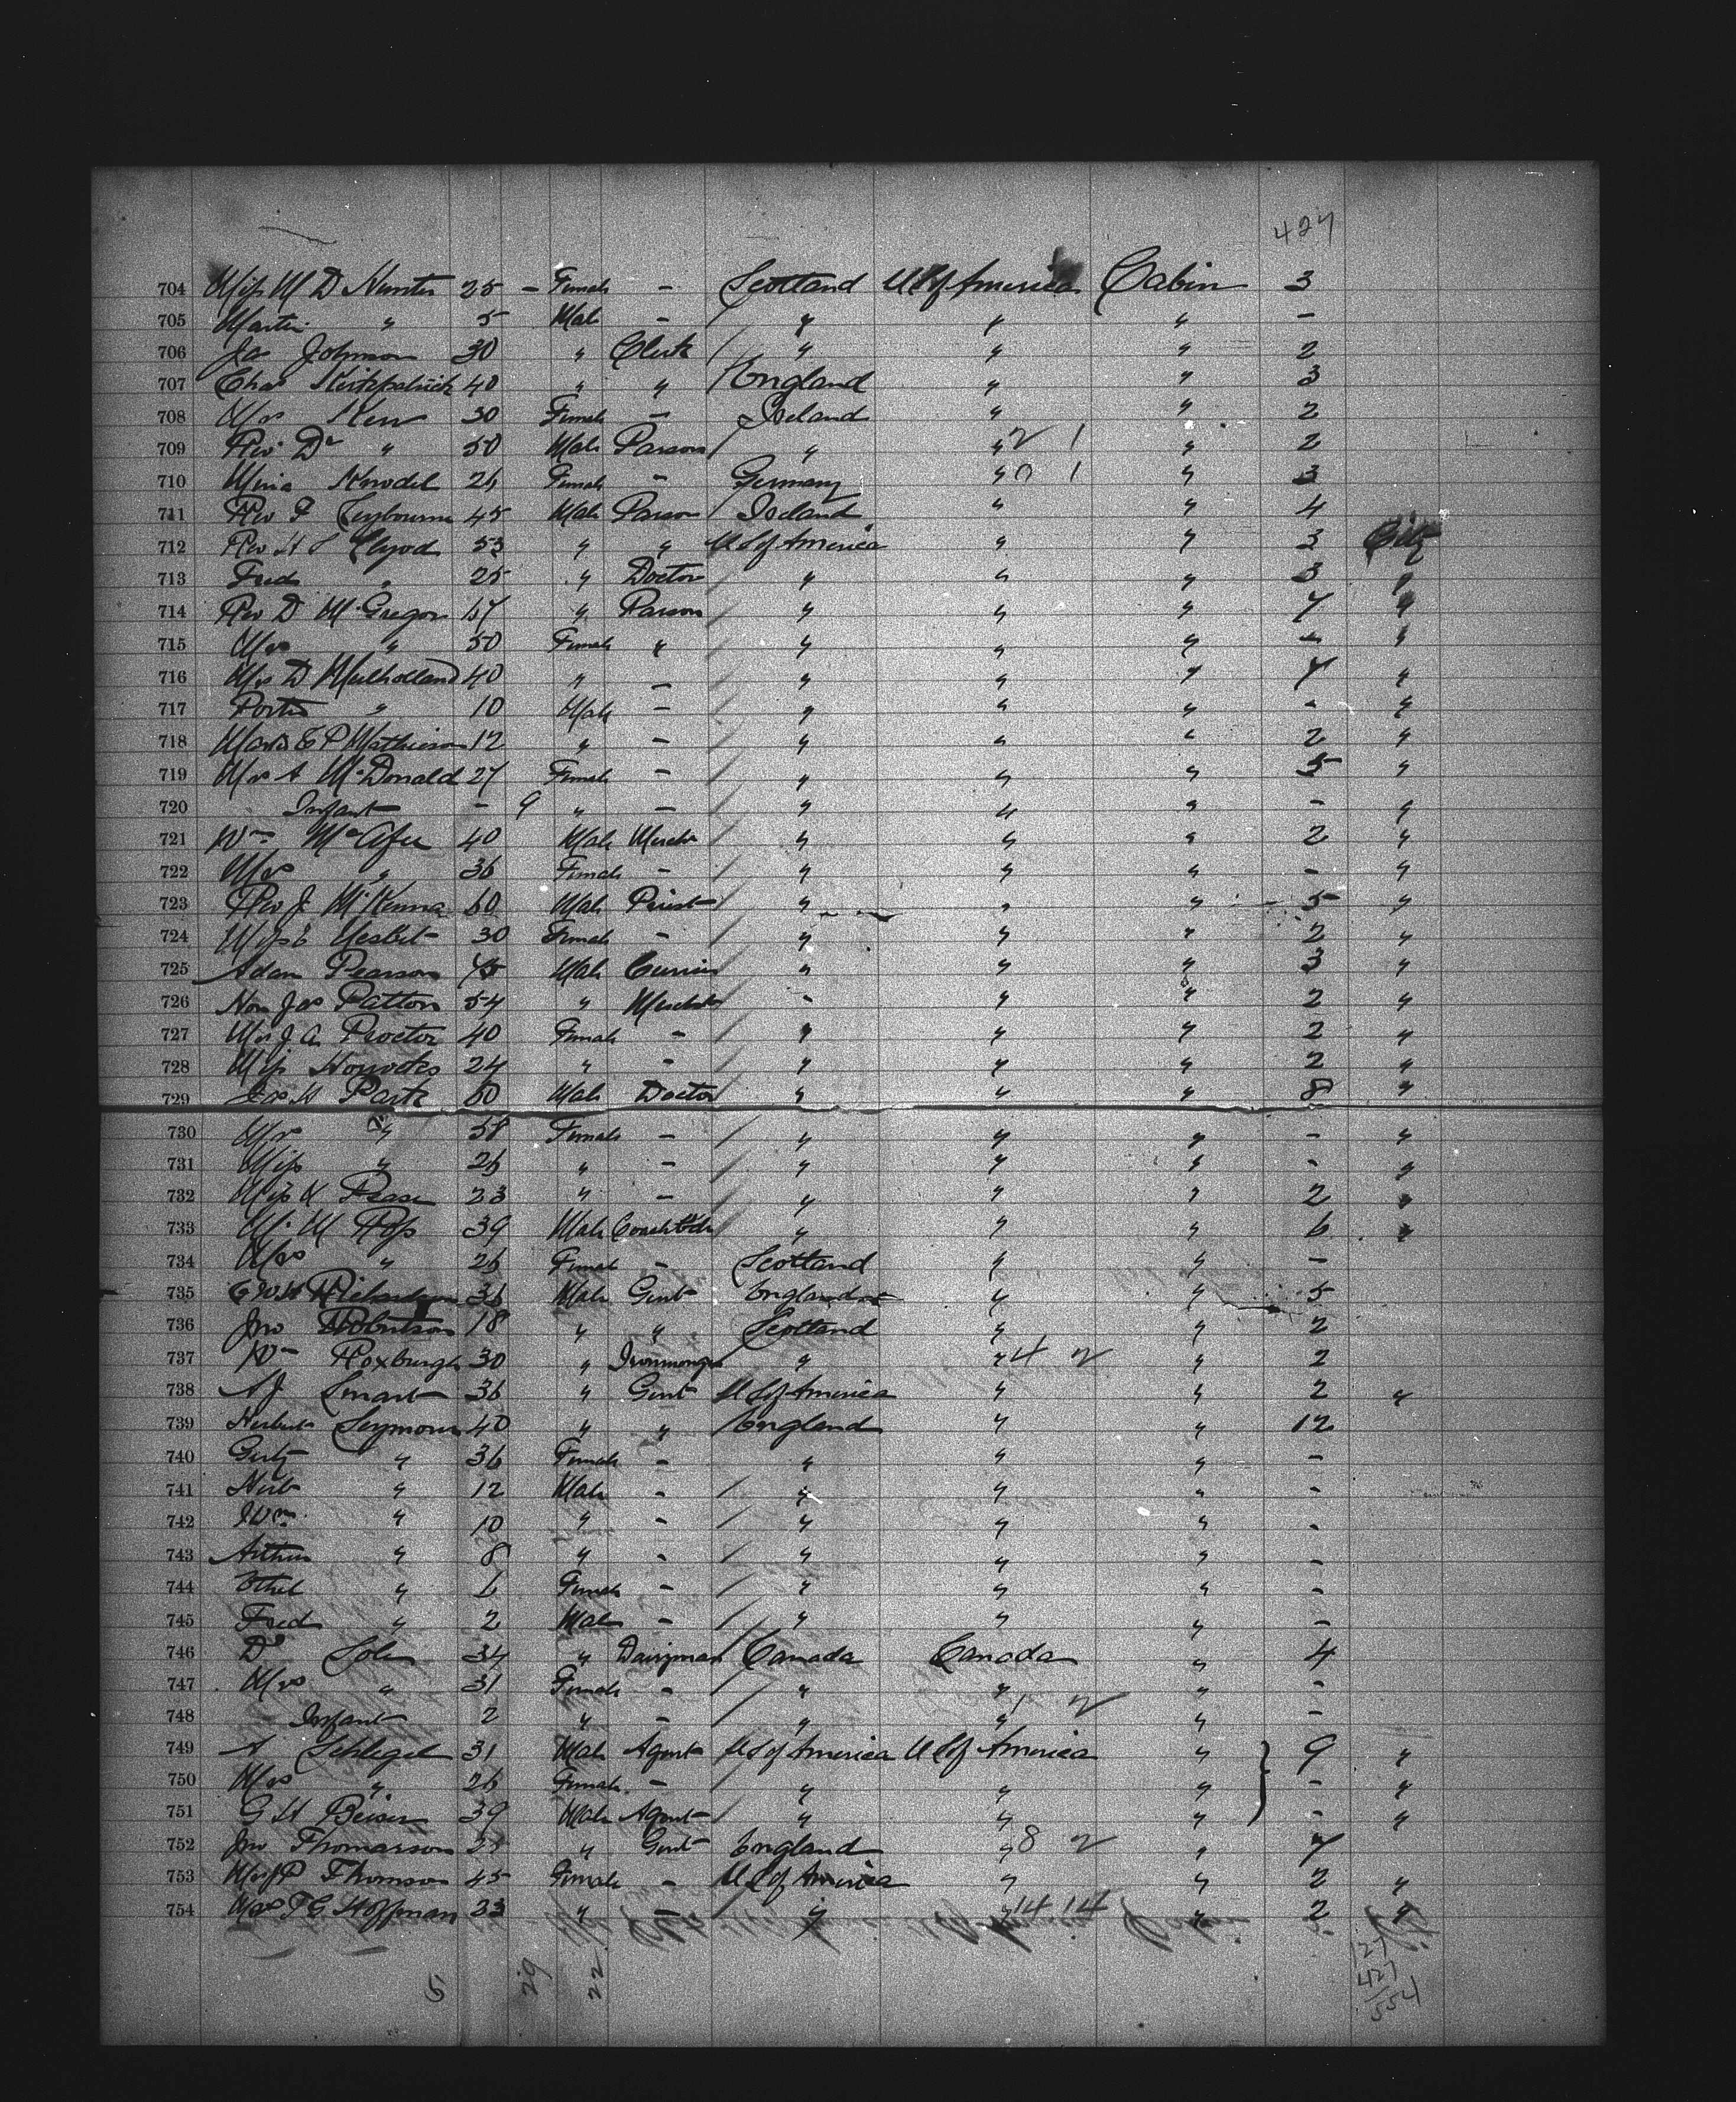 427
704 Miss M D Hunter 25 - Female - Scotland U S of America Cabin 3
705 Master " 5 Male - " " " -
706 Jas Johnson 30 " Clerk " " " 2
707 Chas Kirkpatrick 40 " " England " " 3
708 Mrs Kerr 30 Female - Ireland " " 2
709 Rev Dr " 50 Male Parson " " 2 1 " 2
710 Mina Knodel 26 Female - Germany " 0 1 " 3
711 Rev F 45 Male Parson Ireland " " 4
712 Rev H S 53 " " U S of America " " 3
713 Fred " 25 " Doctor " " " 3 "
714 Rev D McGregor 67 " Parson " " " 7 "
715 Mrs " 50 Female " " " " - "
716 Mrs D Mulholland 40 " - " " " 7 "
717 Porter " 10 Male - " " " - "
718 E P Mathieson 12 " - " " " 2 "
719 Mrs A McDonald 27 Female - " " " 5 "
720 Infant - 9 " - " " " - "
721 Wm McAfee 40 Male Mercht " " " 2 "
722 Mrs " 36 Female - " " " - "
723 Rev J McKenna 60 Male Priest " " " 5 "
724 Miss E Nesbit 30 Female - " " " 2 "
725 Adam Pearson 45 Male Currier " " " 3 "
726 Hon Jas Patton 54 " Merchant " " " 2 "
727 Mrs J A Proctor 40 Female - " " " 2 "
728 Miss 24 " - " " " 2 "
729 Jas H Park 60 Male Doctor " " " 8 "
730 Mrs " 58 Female - " " " - "
731 Miss " 26 " - " " " - "
732 Miss Pease 23 " - " " " 2 "
733 M Ross 39 Male " " " 6 "
734 Mrs " 26 Female - Scotland " " -
735 Richardson 36 Male Gent England " " 5
736 Jno Robertson 18 " " Scotland " " 2
737 Wm Roxburgh 30 " Ironmonger " " 4 2 " 2
738 A J Smart 36 " Gent U S of America " " 2 "
739 Herbert Seymour 40 " " England " " 12
740 Gerty " 36 Female - " " " -
741 Herb " 12 Male - " " " -
742 Wm " 10 " - " " " -
743 Arthur " 8 " - " " " -
744 Ethel " 6 Female - " " " -
745 Fred " 2 Male - " " " -
746 Dd Sole 34 " Dairyman Canada Canada " 4
747 Mrs " 31 Female - " " " -
748 Infant 2 " - " " 1 2 " -
749 A Schlegel 31 Male Agent U S of America U S of America " 9 "
750 Mrs " 26 Female - " " " - "
751 G H Beiser 39 Male Agent " " " - "
752 Jno Thomasson " Gent England " 8 2 " 7
753 Mrs P Thomson 45 Female - U S of America " " 2 "
754 Mrs F G Hoffman 33 " - " " 14 14 " 2 "
5 29 22
127
427
554